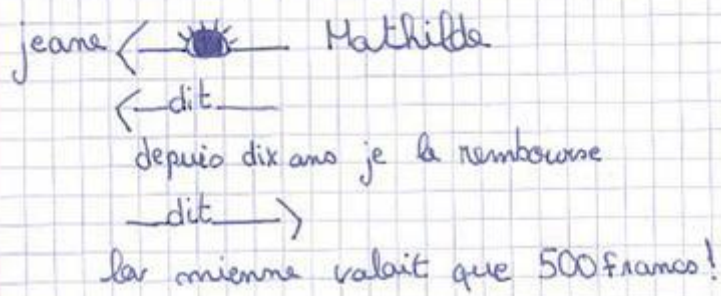 jeane Mathilde
dit
depuis dix ans je la rembourse
dit
la mienne valait que 500 francs!